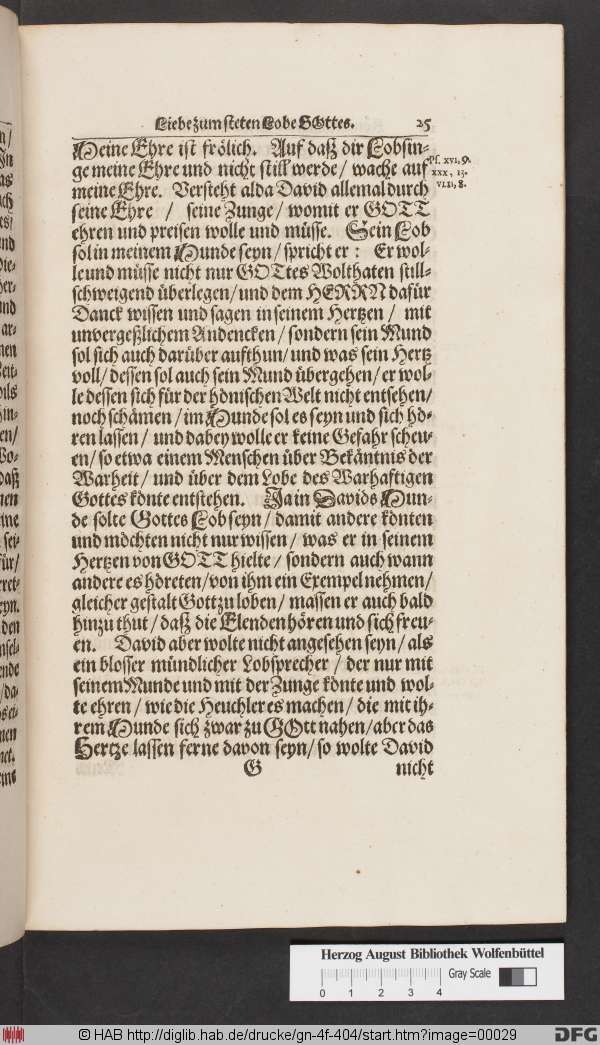 Liebe zum steten Lobe GOttes. 25
Meine Ehre ist frölich. Auf daß dir Lobsin-
ge meine Ehre und nicht still werde / wache auf
meine Ehre. Versteht alda David allemal durch
seine Ehre / seine Zunge / womit er GOTT
ehren und preisen wolle und müsse. Sein Lob
sol in meinem Munde seyn / spricht er: Er wol-
le und müsse nicht nur GOttes Wolthaten still-
schweigend überlegen / und dem HERRN dafür
Danck wissen und sagen in seinem Hertzen / mit
unvergeßlichem Andencken / sondern sein Mund
sol sich auch darüber aufthun / und was sein Hertz
voll / dessen sol auch sein Mund übergehen / er wol-
le dessen sich für der hönischen Welt nicht entsehen /
noch schämen / im Munde sol es seyn und sich hö-
ren lassen / und dabey wolle er keine Gefahr scheu-
en / so etwa einem Menschen über Bekäntnis der
Warheit / und über dem Lobe des Warhaftigen
Gottes könte entstehen. Ja in Davids Mun-
de solte Gottes Lob seyn / damit andere könten
und möchten nicht nur wissen / was er in seinem
Hertzen von GOTT hielte / sondern auch wann
andere es höreten / von ihm ein Exempel nehmen /
gleicher gestalt Gott zu loben / massen er auch bald
hinzu thut / daß die Elenden hören und sich freu-
en. David aber wolte nicht angesehen seyn / als
ein blosser mündlicher Lobsprecher / der nur mit
seinem Munde und mit der Zunge könte und wol-
te ehren / wie die Heuchler es machen / die mit ih-
rem Munde sich zwar zu GOtt nahen / aber das
Hertze lassen ferne davon seyn / so wolte David
G nicht
Ps. xvi, 9.
xxx, 13.
Herzog August Bibliothek Wolfenbüttel
Gray Scale
0 1 2 3 4
© HAB http://diglib.hab.de/drucke/gn-4f-404/start.htm?image=00029
DFG